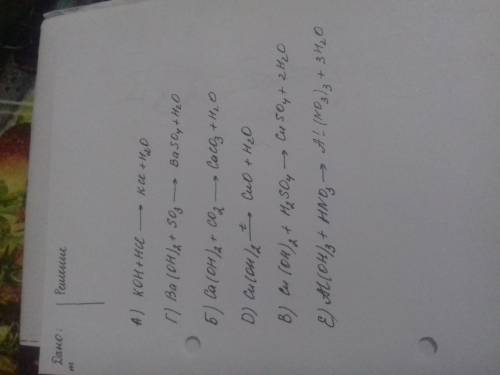 Дано: Решение
m
А) KOH+HCl → KCl+H2O
Г) Ba(OH)2 + SO3 → BaSO4+H2O
Б) Ca(OH)2 + CO2 → CaCO3 + H2O
D) Cu(OH)2 t→ CuO + H2O
В) Cu(OH)2 + H2SO4 → CuSO4 + 2H2O
Е) Al(OH)3 + HNO3 → Al(NO3)3 + 3H2O